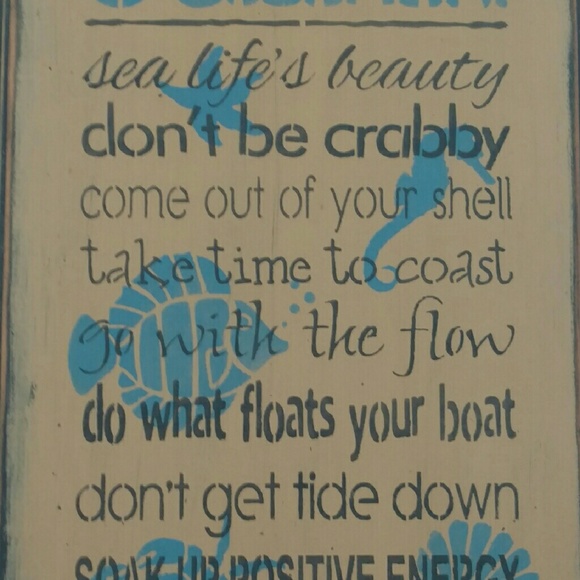 sea life's beauty
don't be crabby
come out of your shell
take time to coast
go with the flow
do what floats your boat
don't get tide down
SOAK UP POSITIVE ENERGY